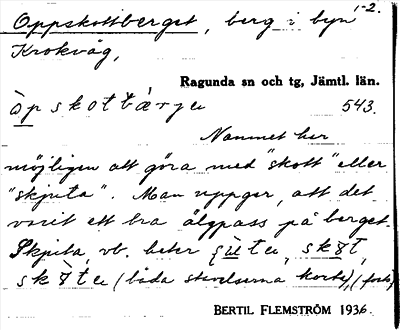 Oppskottberget, berg i byn 1-2.
Krokvåg,
Ragunda sn och tg, Jämtl. län.
òpskotbærjeɯ 543.
Namnet har
möjligen att göra med "skott" eller
"skjuta". Man uppger, att det
varit ett bra älgpass på berget.
Skjuta, vb. heter
(båda stavelserna korta),
BERTIL FLEMSTRÖM 1936.